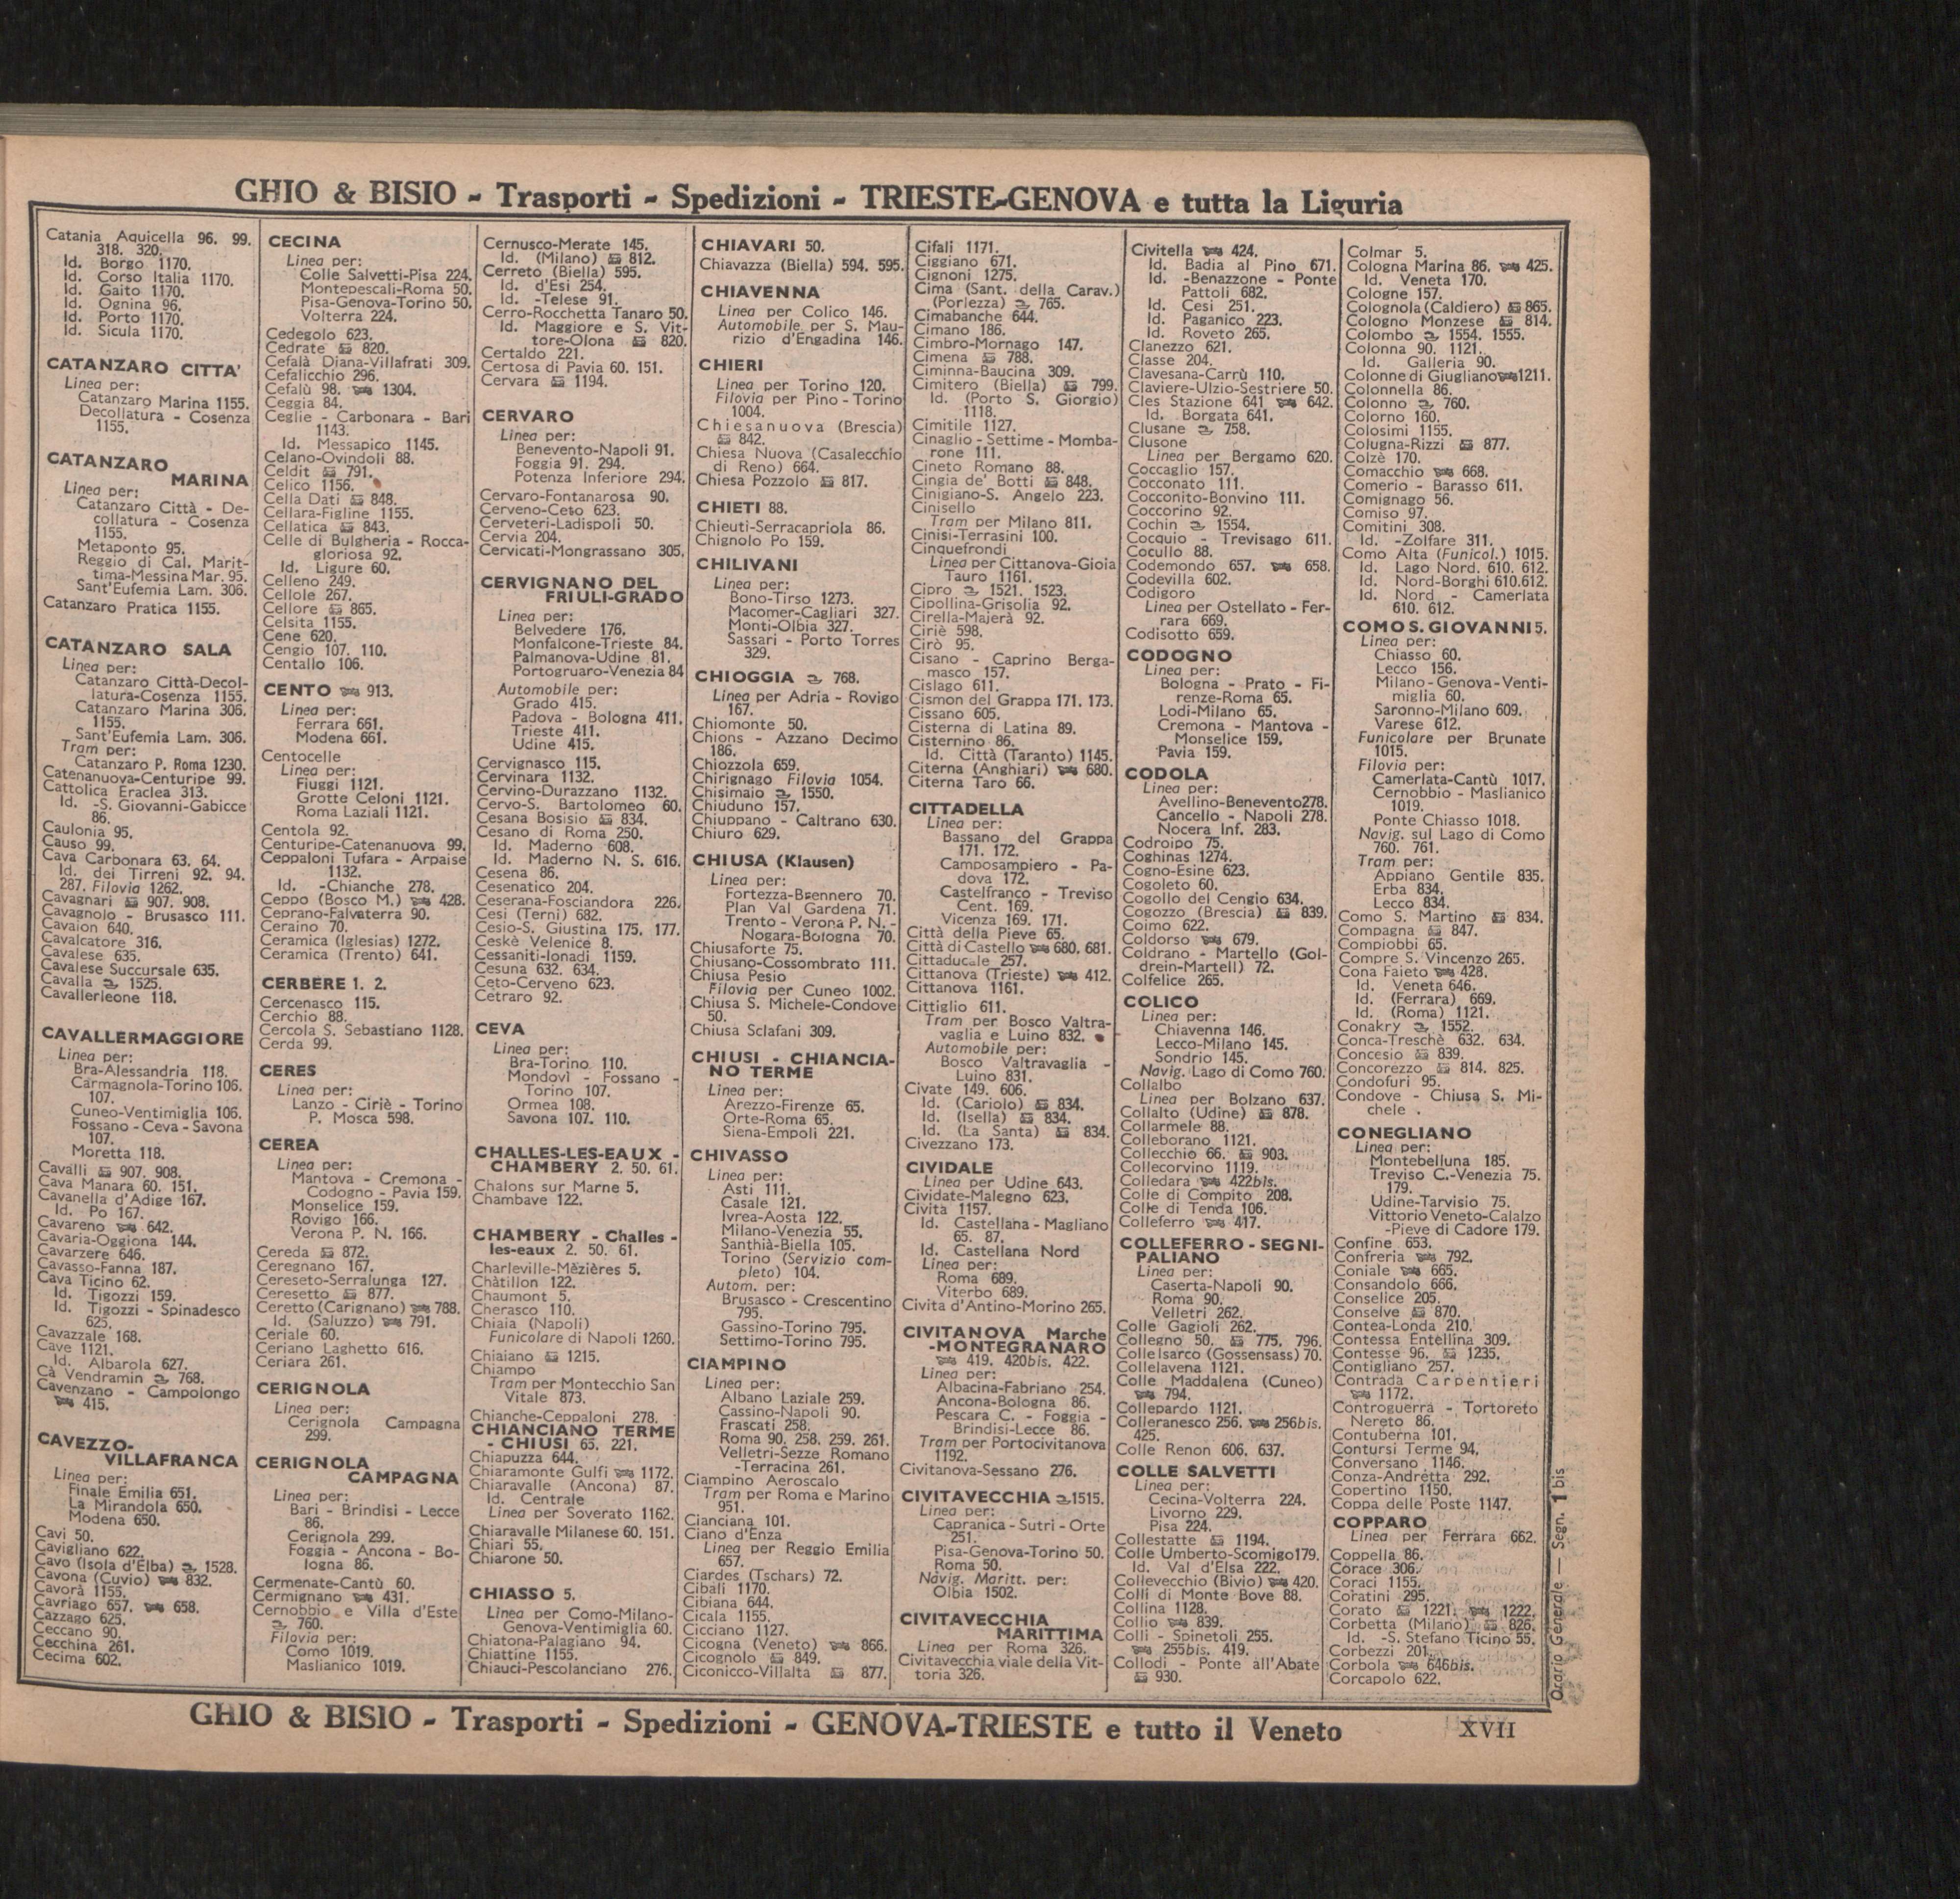 GHIO & BISIO - Trasporti - Spedizioni - TRIESTE-GENOVA e tutta la Liguria
Catania Aquicella 96. 99.
318. 320.
Id. Borgo 1170.
Id. Corso Italia 1170.
Id. Gaito 1170.
Id. Ognina 96.
Id. Porto 1170.
Id. Sicula 1170.
CATANZARO CITTA'
Linea per:
Catanzaro Marina 1155.
Decollatura - Cosenza
1155.
CATANZARO
MARINA
Linea per:
Catanzaro Città - De-
collatura - Cosenza
1155.
Metaponto 95.
Reggio di Cal. Marit-
tima-Messina Mar. 95.
Sant'Eufemia Lam. 306.
Catanzaro Pratica 1155.
CATANZARO SALA
Linea per:
Catanzaro Città-Decol-
latura-Cosenza 1155.
Catanzaro Marina 306.
1155.
Sant'Eufemia Lam. 306.
Tram per:
Catanzaro P. Roma 1230.
Catenanuova-Centuripe 99.
Cattolica Eraclea 313.
Id. -S. Giovanni-Gabicce
86.
Caulonia 95.
Causo 99.
Cava Carbonara 63. 64.
Id. dei Tirreni 92. 94.
287. Filovia 1262.
Cavagnari 907. 908.
Cavagnolo - Brusasco 111.
Cavaion 640.
Cavalcatore 316.
Cavalese 635.
Cavalese Succursale 635.
Cavalla 1525.
Cavallerleone 118.
CAVALLERMAGGIORE
Linea per:
Bra-Alessandria 118.
Carmagnola-Torino 106.
107.
Cuneo-Ventimiglia 106.
Fossano - Ceva - Savona
107.
Moretta 118.
Cavalli 907. 908.
Cava Manara 60. 151.
Cavanella d'Adige 167.
Id. Po 167.
Cavareno 642.
Cavaria-Oggiona 144.
Cavarzere 646.
Cavasso-Fanna 187.
Cava Ticino 62.
Id. Tigozzi 159.
Id. Tigozzi - Spinadesco
625.
Cavazzale 168.
Cave 1121.
Id. Albarola 627.
Cà Vendramin 768.
Cavenzano - Campolongo
415.
CAVEZZO-
VILLAFRANCA
Linea per:
Finale Emilia 651.
La Mirandola 650.
Modena 650.
Cavi 50.
Cavigliano 622.
Cavo (Isola d'Elba) 1528.
Cavona (Cuvio) 832.
Cavorà 1155.
Cavriago 657. 658.
Cazzago 625.
Ceccano 90.
Cecchina 261.
Cecima 602.
CECINA
Linea per:
Colle Salvetti-Pisa 224.
Montepescali-Roma 50.
Pisa-Genova-Torino 50.
Volterra 224.
Cedegolo 623.
Cedrate 820.
Cefalà Diana-Villafrati 309.
Cefalicchio 296.
Cefalù 98. 1304.
Ceggia 84.
Ceglie - Carbonara - Bari
1143.
Id. Messapico 1145.
Celano-Ovindoli 88.
Celdit 791.
Celico 1156.
Cella Dati 848.
Cellara-Figline 1155.
Cellatica 843.
Celle di Bulgheria - Rocca-
gloriosa 92.
Id. Ligure 60.
Celleno 249.
Cellole 267.
Cellore 865.
Celsita 1155.
Cene 620.
Cengio 107. 110.
Centallo 106.
CENTO 913.
Linea per:
Ferrara 661.
Modena 661.
Centocelle
Linea per:
Fiuggi 1121.
Grotte Celoni 1121.
Roma Laziali 1121.
Centola 92.
Centuripe-Catenanuova 99.
Ceppaloni Tufara - Arpaise
1132.
Id. -Chianche 278.
Ceppo (Bosco M.) 428.
Ceprano-Falvaterra 90.
Ceraino 70.
Ceramica (Iglesias) 1272.
Ceramica (Trento) 641.
CERBERE 1. 2.
Cercenasco 115.
Cerchio 88.
Cercola S. Sebastiano 1128.
Cerda 99.
CERES
Linea per:
Lanzo - Ciriè - Torino
P. Mosca 598.
CEREA
Linea per:
Mantova - Cremona -
Codogno - Pavia 159.
Monselice 159.
Rovigo 166.
Verona P. N. 166.
Cereda 872.
Ceregnano 167.
Cereseto-Serralunga 127.
Ceresetto 877.
Ceretto (Carignano) 788.
Id. (Saluzzo) 791.
Ceriale 60.
Ceriano Laghetto 616.
Ceriara 261.
CERIGNOLA
Linea per:
Cerignola Campagna
299.
CERIGNOLA
CAMPAGNA
Linea per:
Bari - Brindisi - Lecce
86.
Cerignola 299.
Foggia - Ancona - Bo-
logna 86.
Cermenate-Cantù 60.
Cermignano 431.
Cernobbio e Villa d'Este
760.
Filovia per:
Como 1019.
Maslianico 1019.
Cernusco-Merate 145.
Id. (Milano) 812.
Cerreto (Biella) 595.
Id. d'Esi 254.
Id. -Telese 91.
Cerro-Rocchetta Tanaro 50.
Id. Maggiore e S. Vit-
tore-Olona 820.
Certaldo 221.
Certosa di Pavia 60. 151.
Cervara 1194.
CERVARO
Linea per:
Benevento-Napoli 91.
Foggia 91. 294.
Potenza Inferiore 294.
Cervaro-Fontanarosa 90.
Cerveno-Ceto 623.
Cerveteri-Ladispoli 50.
Cervia 204.
Cervicati-Mongrassano 305.
CERVIGNANO DEL
FRIULI-GRADO
Linea per:
Belvedere 176.
Monfalcone-Trieste 84.
Palmanova-Udine 81.
Portogruaro-Venezia 84
Automobile per:
Grado 415.
Padova - Bologna 411.
Trieste 411.
Udine 415.
Cervignasco 115.
Cervinara 1132.
Cervino-Durazzano 1132.
Cervo-S. Bartolomeo 60.
Cesana Bosisio 834.
Cesano di Roma 250.
Id. Maderno 608.
Id. Maderno N. S. 616.
Cesena 86.
Cesenatico 204.
Ceserana-Fosciandora 226.
Cesi (Terni) 682.
Cesio-S. Giustina 175. 177.
Ceskè Velenice 8.
Cessaniti-Ionadi 1159.
Cesuna 632. 634.
Ceto-Cerveno 623.
Cetraro 92.
CEVA
Linea per:
Bra-Torino 110.
Mondovì - Fossano -
Torino 107.
Ormea 108.
Savona 107. 110.
CHALLES-LES-EAUX -
CHAMBERY 2. 50. 61.
Chalons sur Marne 5.
Chambave 122.
CHAMBERY - Challes -
les-eaux 2. 50. 61.
Charleville-Mèzières 5.
Châtillon 122.
Chaumont 5.
Cherasco 110.
Chiaia (Napoli)
Funicolare di Napoli 1260.
Chiaiano 1215.
Chiampo
Tram per Montecchio San
Vitale 873.
Chianche-Ceppaloni 278.
CHIANCIANO TERME
- CHIUSI 65. 221.
Chiapuzza 644.
Chiaramonte Gulfi 1172.
Chiaravalle (Ancona) 87.
Id. Centrale
Linea per Soverato 1162.
Chiaravalle Milanese 60. 151.
Chiari 55.
Chiarone 50.
CHIASSO 5.
Linea per Como-Milano-
Genova-Ventimiglia 60.
Chiatona-Palagiano 94.
Chiattine 1155.
Chiauci-Pescolanciano 276.
CHIAVARI 50.
Chiavazza (Biella) 594. 595.
CHIAVENNA
Linea per Colico 146.
Automobile per S. Mau-
rizio d'Engadina 146.
CHIERI
Linea per Torino 120.
Filovia per Pino - Torino
1004.
Chiesanuova (Brescia)
842.
Chiesa Nuova (Casalecchio
di Reno) 664.
Chiesa Pozzolo 817.
CHIETI 88.
Chieuti-Serracapriola 86.
Chignolo Po 159.
CHILIVANI
Linea per:
Bono-Tirso 1273.
Macomer-Cagliari 327.
Monti-Olbia 327.
Sassari - Porto Torres
329.
CHIOGGIA 768.
Linea per Adria - Rovigo
167.
Chiomonte 50.
Chions - Azzano Decimo
186.
Chiozzola 659.
Chirignago Filovia 1054.
Chisimaio 1550.
Chiuduno 157.
Chiuppano - Caltrano 630.
Chiuro 629.
CHIUSA (Klausen)
Linea per:
Fortezza-Brennero 70.
Plan Val Gardena 71.
Trento - Verona P. N. -
Nogara-Bologna 70.
Chiusaforte 75.
Chiusano-Cossombrato 111.
Chiusa Pesio
Filovia per Cuneo 1002.
Chiusa S. Michele-Condove
50.
Chiusa Sclafani 309.
CHIUSI - CHIANCIA-
NO TERME
Linea per:
Arezzo-Firenze 65.
Orte-Roma 65.
Siena-Empoli 221.
CHIVASSO
Linea per:
Asti 111.
Casale 121.
Ivrea-Aosta 122.
Milano-Venezia 55.
Santhià-Biella 105.
Torino (Servizio com-
pleto) 104.
Autom. per:
Brusasco - Crescentino
795.
Gassino-Torino 795.
Settimo-Torino 795.
CIAMPINO
Linea per:
Albano Laziale 259.
Cassino-Napoli 90.
Frascati 258.
Roma 90. 258. 259. 261.
Velletri-Sezze Romano
-Terracina 261.
Ciampino Aeroscalo
Tram per Roma e Marino
951.
Cianciana 101.
Ciano d'Enza
Linea per Reggio Emilia
657.
Ciardes (Tschars) 72.
Cibali 1170.
Cibiana 644.
Cicala 1155.
Cicciano 1127.
Cicogna (Veneto) 866.
Cicognolo 849.
Ciconicco-Villalta 877.
Cifali 1171.
Ciggiano 671.
Cignoni 1275.
Cima (Sant. della Carav.)
(Porlezza) 765.
Cimabanche 644.
Cimano 186.
Cimbro-Mornago 147.
Cimena 788.
Ciminna-Baucina 309.
Cimitero (Biella) 799.
Id. (Porto S. Giorgio)
1118.
Cimitile 1127.
Cinaglio - Settime - Momba-
rone 111.
Cineto Romano 88.
Cingia de' Botti 848.
Cinigiano-S. Angelo 223.
Cinisello
Tram per Milano 811.
Cinisi-Terrasini 100.
Cinquefrondi
Linea per Cittanova-Gioia
Tauro 1161.
Cipro 1521. 1523.
Cipollina-Grisolia 92.
Cirella-Majerà 92.
Ciriè 598.
Cirò 95.
Cisano - Caprino Berga-
masco 157.
Cislago 611.
Cismon del Grappa 171. 173.
Cissano 605.
Cisterna di Latina 89.
Cisternino 86.
Id. Città (Taranto) 1145.
Citerna (Anghiari) 680.
Citerna Taro 66.
CITTADELLA
Linea per:
Bassano del Grappa
171. 172.
Camposampiero - Pa-
dova 172.
Castelfranco - Treviso
Cent. 169.
Vicenza 169. 171.
Città della Pieve 65.
Città di Castello 680. 681.
Cittaducale 257.
Cittanova (Trieste) 412.
Cittanova 1161.
Cittiglio 611.
Tram per Bosco Valtra-
vaglia e Luino 832.
Automobile per:
Bosco Valtravaglia -
Luino 831.
Civate 149. 606.
Id. (Cariolo) 834.
Id. (Isella) 834.
Id. (La Santa) 834.
Civezzano 173.
CIVIDALE
Linea per Udine 643.
Cividate-Malegno 623.
Civita 1157.
Id. Castellana - Magliano
65. 87.
Id. Castellana Nord
Linea per:
Roma 689.
Viterbo 689.
Civita d'Antino-Morino 265.
CIVITANOVA Marche
-MONTEGRANARO
419. 420bis. 422.
Linea per:
Albacina-Fabriano 254.
Ancona-Bologna 86.
Pescara C. - Foggia -
Brindisi-Lecce 86.
Tram per Portocivitanova
1192.
Civitanova-Sessano 276.
CIVITAVECCHIA 1515.
Linea per:
Capranica - Sutri - Orte
251.
Pisa-Genova-Torino 50.
Roma 50.
Navig. Maritt. per:
Olbia 1502.
CIVITAVECCHIA
MARITTIMA
Linea per Roma 326.
Civitavecchia viale della Vit-
toria 326.
Civitella 424.
Id. Badia al Pino 671.
Id. -Benazzone - Ponte
Pattoli 682.
Id. Cesi 251.
Id. Paganico 223.
Id. Roveto 265.
Clanezzo 621.
Classe 204.
Clavesana-Carrù 110.
Claviere-Ulzio-Sestriere 50.
Cles Stazione 641 642.
Id. Borgata 641.
Clusane 758.
Clusone
Linea per Bergamo 620.
Coccaglio 157.
Cocconato 111.
Cocconito-Bonvino 111.
Coccorino 92.
Cochin 1554.
Cocquio - Trevisago 611.
Cocullo 88.
Codemondo 657. 658.
Codevilla 602.
Codigoro
Linea per Ostellato - Fer-
rara 669.
Codisotto 659.
CODOGNO
Linea per:
Bologna - Prato - Fi-
renze-Roma 65.
Lodi-Milano 65.
Cremona - Mantova -
Monselice 159.
Pavia 159.
CODOLA
Linea per:
Avellino-Benevento278.
Cancello - Napoli 278.
Nocera Inf. 283.
Codroipo 75.
Coghinas 1274.
Cogno-Esine 623.
Cogoleto 60.
Cogollo del Cengio 634.
Cogozzo (Brescia) 839.
Coimo 622.
Coldorso 679.
Coldrano - Martello (Gol-
drein-Martell) 72.
Colfelice 265.
COLICO
Linea per:
Chiavenna 146.
Lecco-Milano 145.
Sondrio 145.
Navig. Lago di Como 760.
Collalbo
Linea per Bolzano 637.
Collalto (Udine) 878.
Collarmele 88.
Colleborano 1121.
Collecchio 66. 903.
Collecorvino 1119.
Colledara 422bis.
Colle di Compito 208.
Colle di Tenda 106.
Colleferro 417.
COLLEFERRO - SEGNI-
PALIANO
Linea per:
Caserta-Napoli 90.
Roma 90.
Velletri 262.
Colle Gagioli 262.
Collegno 50. 775. 796.
Colle Isarco (Gossensass) 70.
Collelavena 1121.
Colle Maddalena (Cuneo)
794.
Collepardo 1121.
Colleranesco 256. 256bis.
425.
Colle Renon 606. 637.
COLLE SALVETTI
Linea per:
Cecina-Volterra 224.
Livorno 229.
Pisa 224.
Collestatte 1194.
Colle Umberto-Scomigo179.
Id. Val d'Elsa 222.
Collevecchio (Bivio) 420.
Colli di Monte Bove 88.
Collina 1128.
Collio 839.
Colli - Spinetoli 255.
255bis. 419.
Collodi - Ponte all'Abate
930.
Colmar 5.
Cologna Marina 86. 425.
Id. Veneta 170.
Cologne 157.
Colognola (Caldiero) 865.
Cologno Monzese 814.
Colombo 1554. 1555.
Colonna 90. 1121.
Id. Galleria 90.
Colonne di Giugliano 1211.
Colonnella 86.
Colonno 760.
Colorno 160.
Colosimi 1155.
Colugna-Rizzi 877.
Colzè 170.
Comacchio 668.
Comerio - Barasso 611.
Comignago 56.
Comiso 97.
Comitini 308.
Id. -Zolfare 311.
Como Alta (Funicol.) 1015.
Id. Lago Nord. 610. 612.
Id. Nord-Borghi 610.612.
Id. Nord - Camerlata
610. 612.
COMO S. GIOVANNI 5.
Linea per:
Chiasso 60.
Lecco 156.
Milano - Genova - Venti-
miglia 60.
Saronno-Milano 609.
Varese 612.
Funicolare per Brunate
1015.
Filovia per:
Camerlata-Cantù 1017.
Cernobbio - Maslianico
1019.
Ponte Chiasso 1018.
Navig. sul Lago di Como
760. 761.
Tram per:
Appiano Gentile 835.
Erba 834.
Lecco 834.
Como S. Martino 834.
Compagna 847.
Compiobbi 65.
Compre S. Vincenzo 265.
Cona Faieto 428.
Id. Veneta 646.
Id. (Ferrara) 669.
Id. (Roma) 1121.
Conakry 1552.
Conca-Treschè 632. 634.
Concesio 839.
Concorezzo 814. 825.
Condofuri 95.
Condove - Chiusa S. Mi-
chele .
CONEGLIANO
Linea per:
Montebelluna 185.
Treviso C.-Venezia 75.
179.
Udine-Tarvisio 75.
Vittorio Veneto-Calalzo
-Pieve di Cadore 179.
Confine 653.
Confreria 792.
Coniale 665.
Consandolo 666.
Conselice 205.
Conselve 870.
Contea-Londa 210.
Contessa Entellina 309.
Contesse 96. 1235.
Contigliano 257.
Contrada Carpentieri
1172.
Controguerra - Tortoreto
Nereto 86.
Contuberna 101.
Contursi Terme 94.
Conversano 1146.
Conza-Andretta 292.
Copertino 1150.
Coppa delle Poste 1147.
COPPARO
Linea per Ferrara 662.
Coppella 86.
Corace 306.
Coraci 1155.
Coratini 295.
Corato 1221. 1222.
Corbetta (Milano) 826.
Id. -S. Stefano Ticino 55.
Corbezzi 201.
Corbola 646bis.
Corcapolo 622.
Orario Generale — Segn. 1 bis
GHIO & BISIO - Trasporti - Spedizioni - GENOVA-TRIESTE e tutto il Veneto
XVII